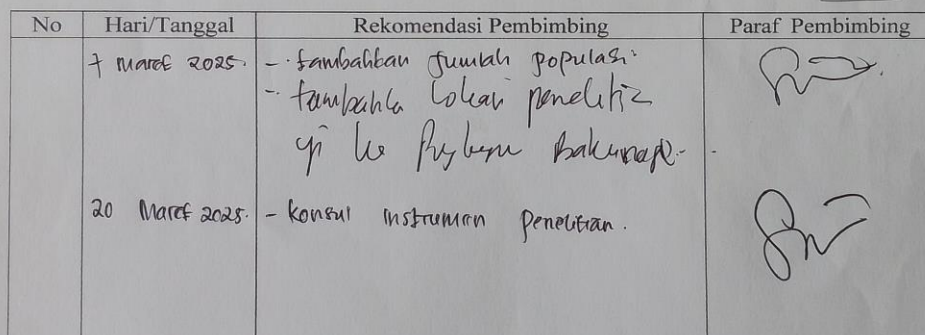 No Hari/Tanggal Rekomendasi Pembimbing Paraf Pembimbing
7 Maret 2025. - tambahkan jumlah populasi.
- tambahka lokasi penelitia
ke
20 Maret 2025. - Konsul instrumen penelitian.